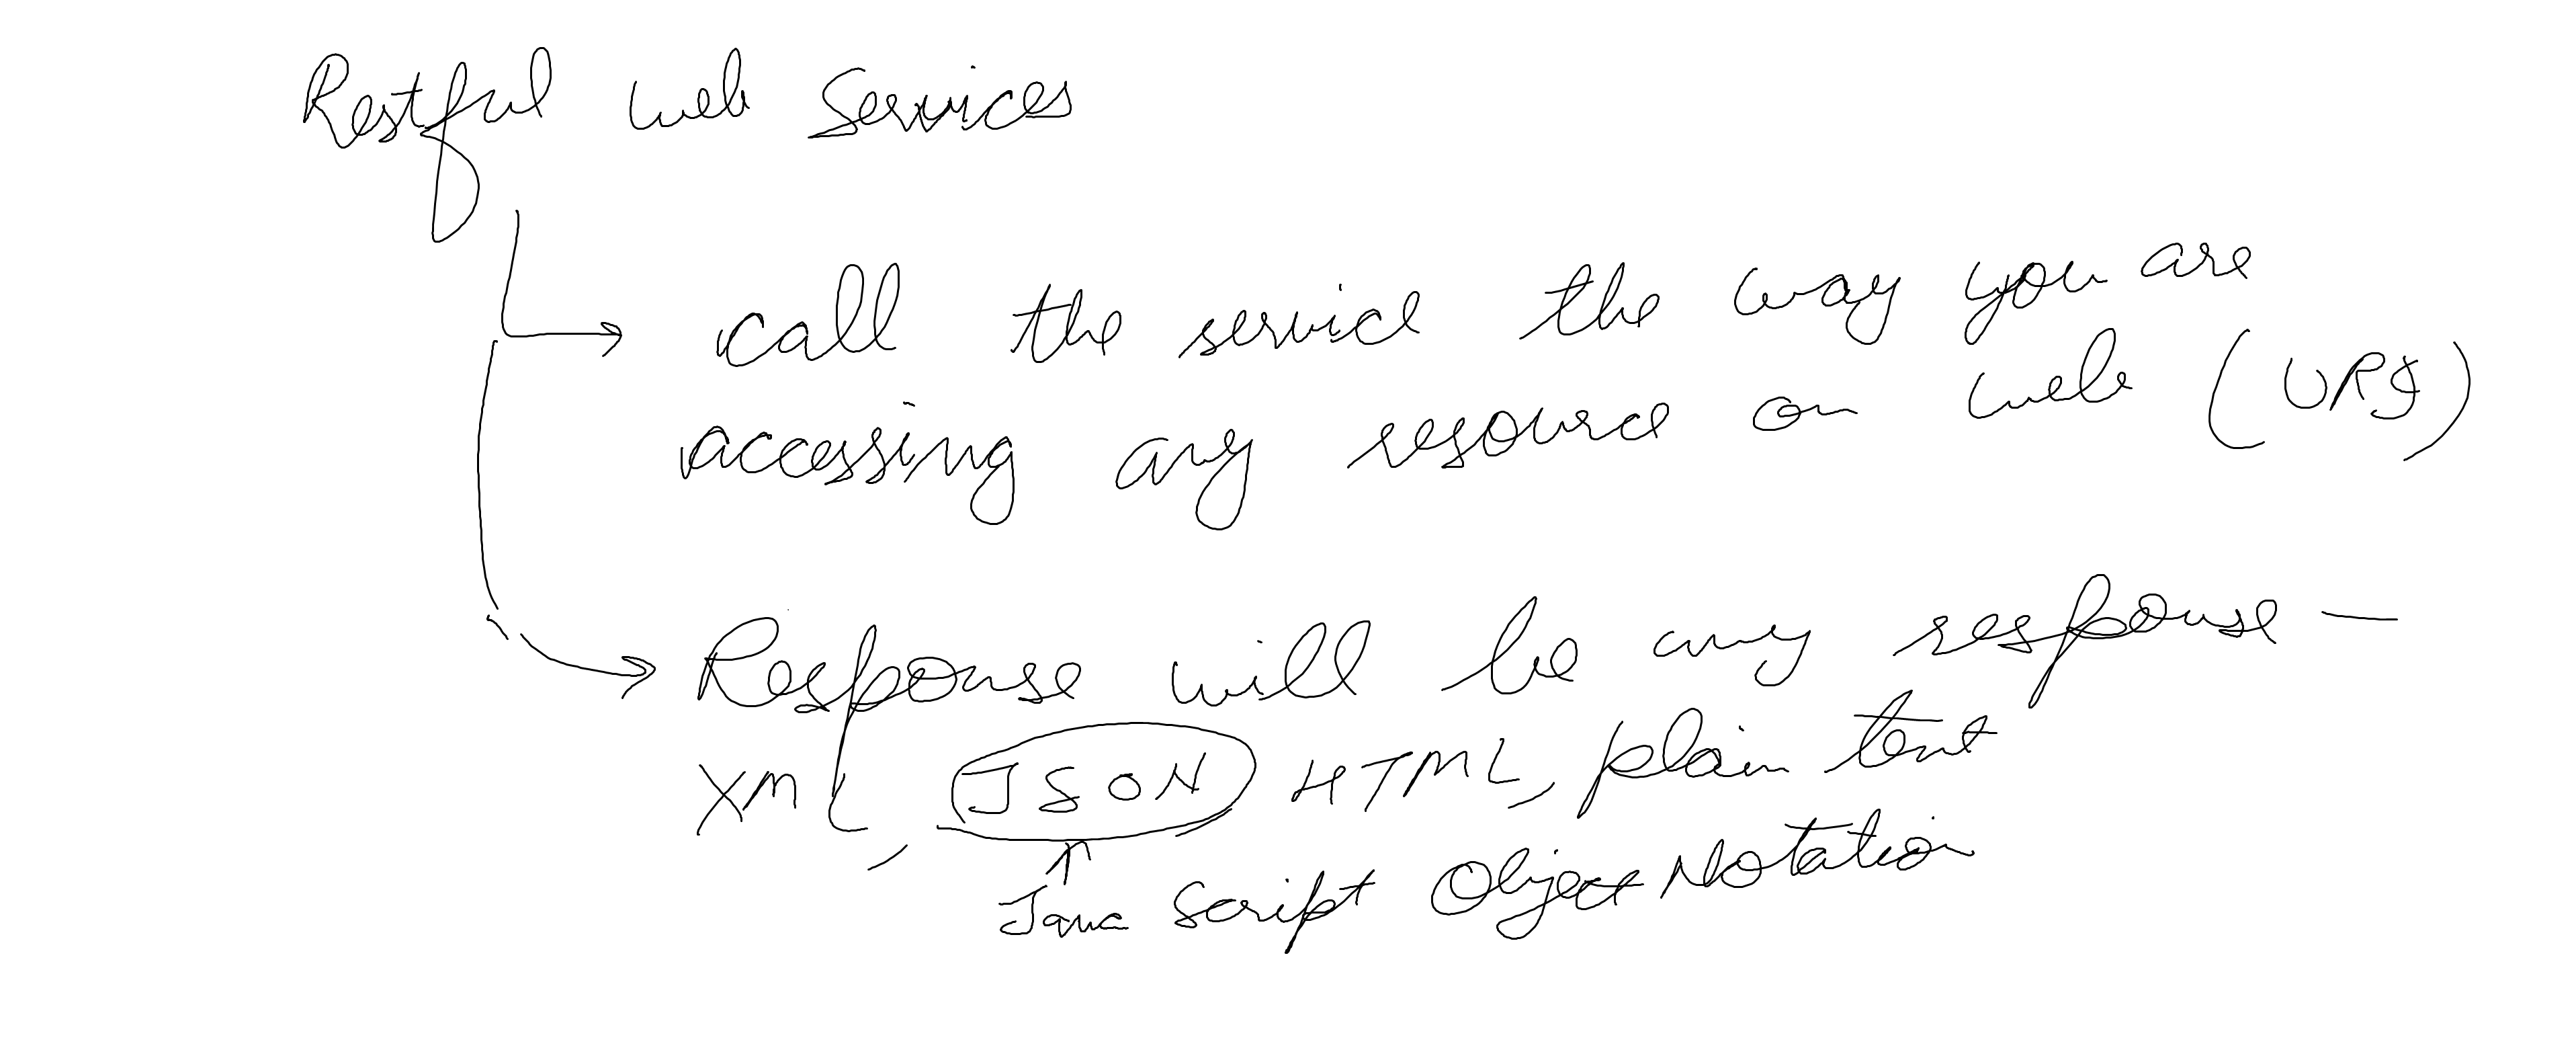 Restful web Services
call the service the way you are
accessing any resource on web (URI)
Response will be any response —
XML, JSON HTML, plain text
Java Script Object Notation